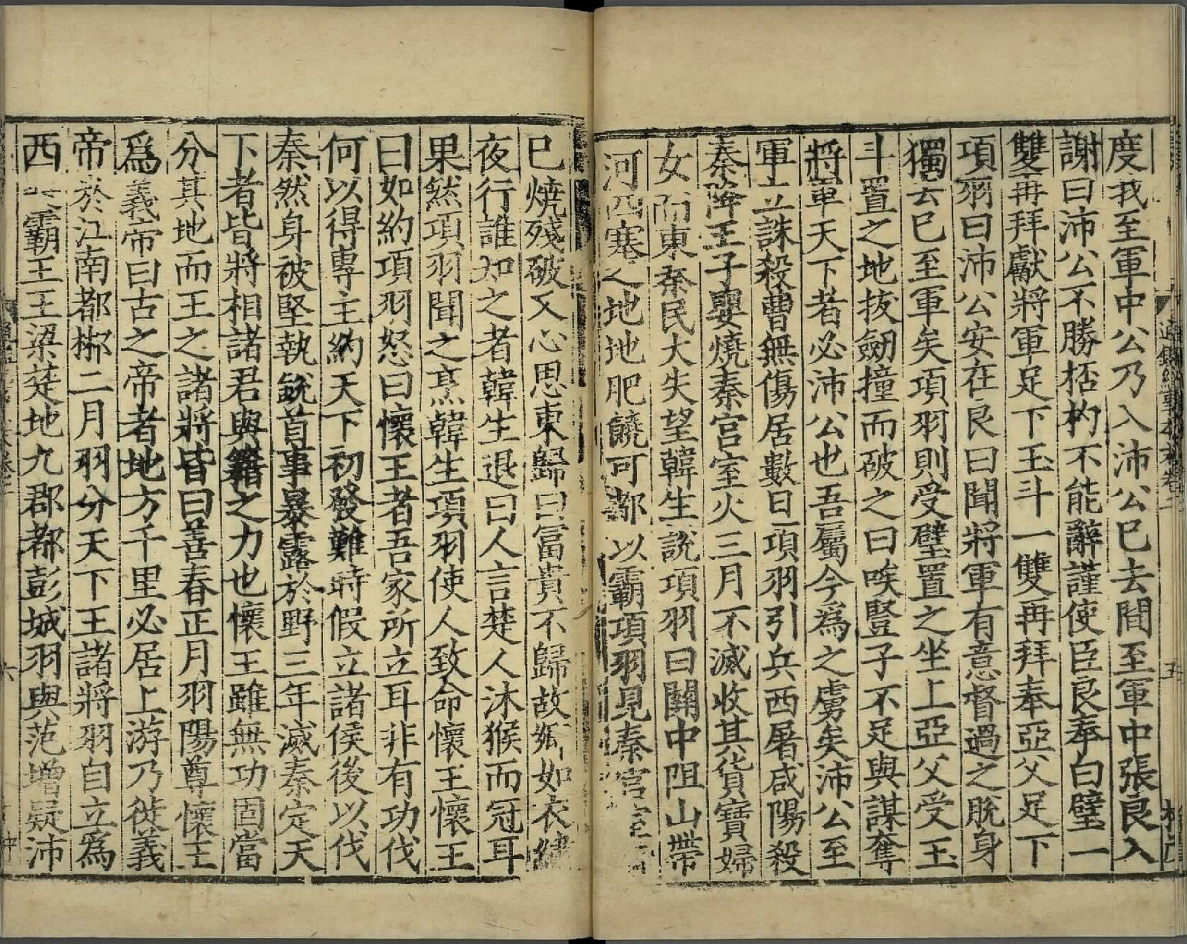 度我至軍中公乃入沛公已去間至軍中張良入
謝曰沛公不勝桮杓不能辭謹使臣良奉白璧一
雙再拜獻將軍足下玉斗一雙再拜奉亞父足下
項羽曰沛公安在良曰聞將軍有意督過之脫身
獨去已至軍矣項羽則受璧置之坐上亞父受玉
斗置之地拔劒撞而破之曰唉豎子不足與謀奪
將軍天下者必沛公也吾屬今爲之虜矣沛公至
軍立誅殺曹無傷居數日項羽引兵西屠咸陽殺
秦降王子嬰燒秦宮室火三月不滅收其貨寶婦
女而東秦民大失望韓生說項羽曰關中阻山帶
河四塞之地地肥饒可都以霸項羽見秦宮室皆
已燒殘破又心思東歸曰富貴不歸故鄉如衣繡
夜行誰知之者韓生退曰人言楚人沐猴而冠耳
果然項羽聞之烹韓生項羽使人致命懷王懷王
曰如約項羽怒曰懷王者吾家所立耳非有功伐
何以得專主約天下初發難時假立諸侯後以伐
秦然身被堅執銳首事暴露於野三年滅秦定天
下者皆將相諸君與籍之力也懷王雖無功固當
分其地而王之諸將皆曰善春正月羽陽尊懷王
爲義帝曰古之帝者地方千里必居上游乃徙義
帝於江南都郴二月羽分天下王諸將羽自立爲
西楚霸王王梁楚地九郡都彭城羽與范增疑沛